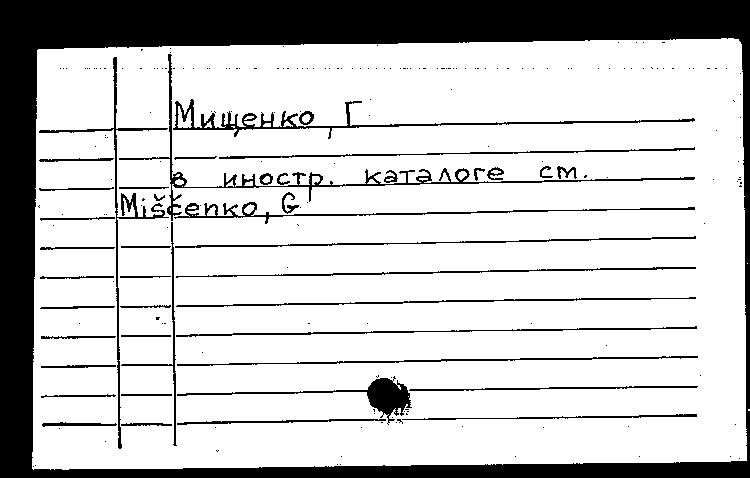 Мищенко, Г
в иностр. каталоге см.
Miščenko, G